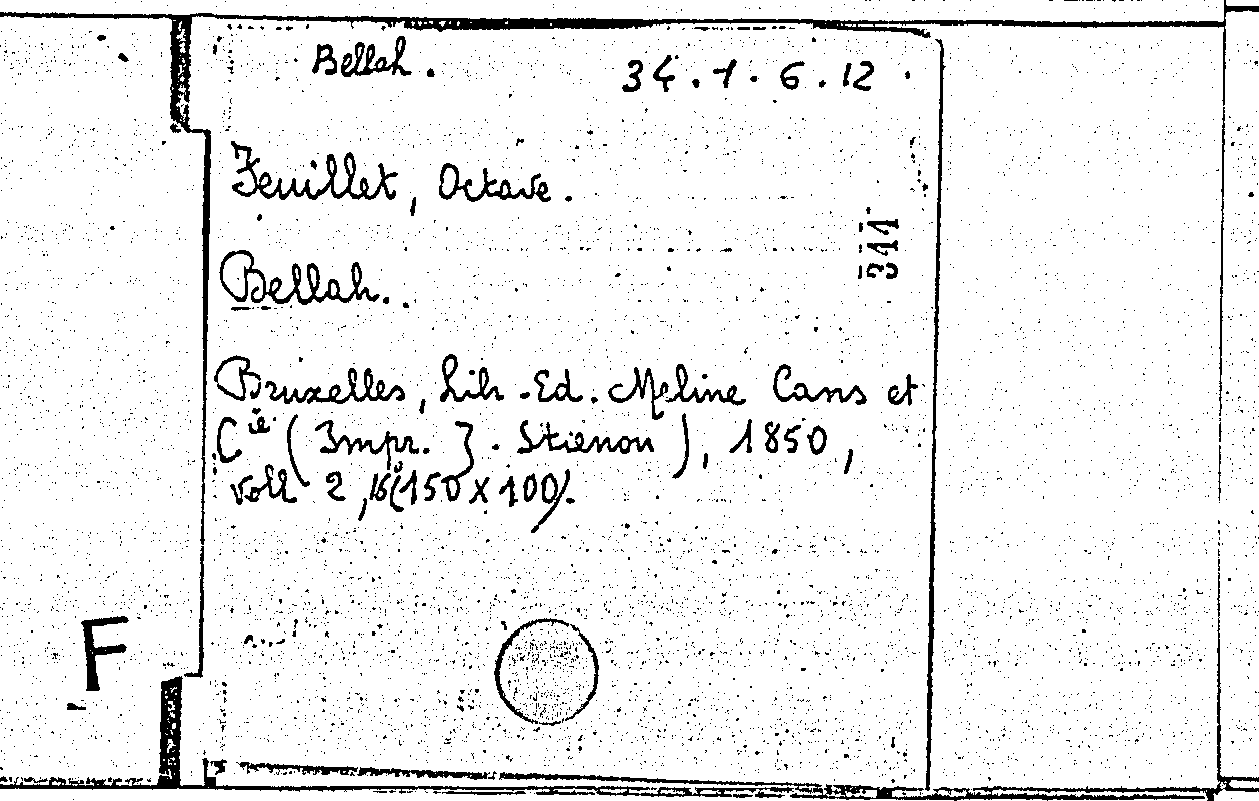 Bellah. 34.1.6.12
Feuillet, Octave.
344
Bellah.
Bruxelles, Lib.-Ed. Meline Cans et
Cie (Impr. J. Stienon), 1850,
voll 2, 16°(150 x 100).
F